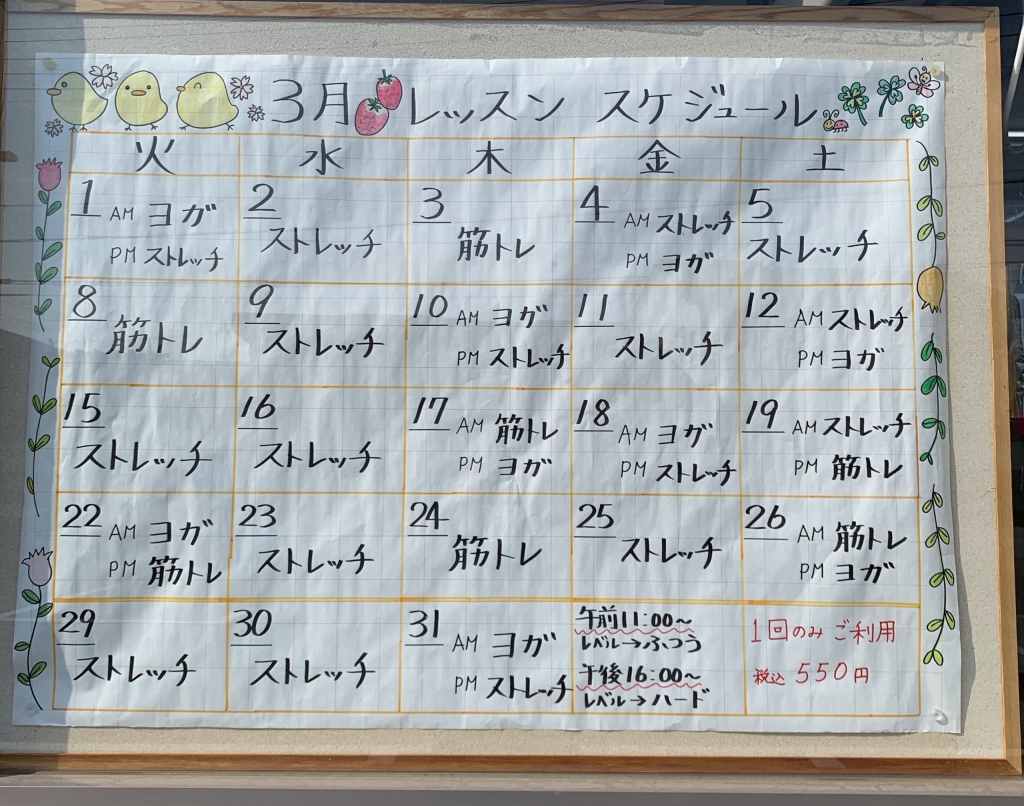 3月 レッスン スケジュール
火 水 木 金 土
1 AM ヨガ
PM ストレッチ
2
ストレッチ
3
筋トレ
4 AM ストレッチ
PM ヨガ
5
ストレッチ
8
筋トレ
9
ストレッチ
10 AM ヨガ
PM ストレッチ
11
ストレッチ
12 AM ストレッチ
PM ヨガ
15
ストレッチ
16
ストレッチ
17 AM 筋トレ
PM ヨガ
18 AM ヨガ
PM ストレッチ
19 AM ストレッチ
PM 筋トレ
22 AM ヨガ
PM 筋トレ
23
ストレッチ
24
筋トレ
25
ストレッチ
26 AM 筋トレ
PM ヨガ
29
ストレッチ
30
ストレッチ
31 AM ヨガ
PM ストレッチ
午前11:00〜
レベル→ふつう
午後16:00〜
レベル→ハード
1回のみ ご利用
税込 550円